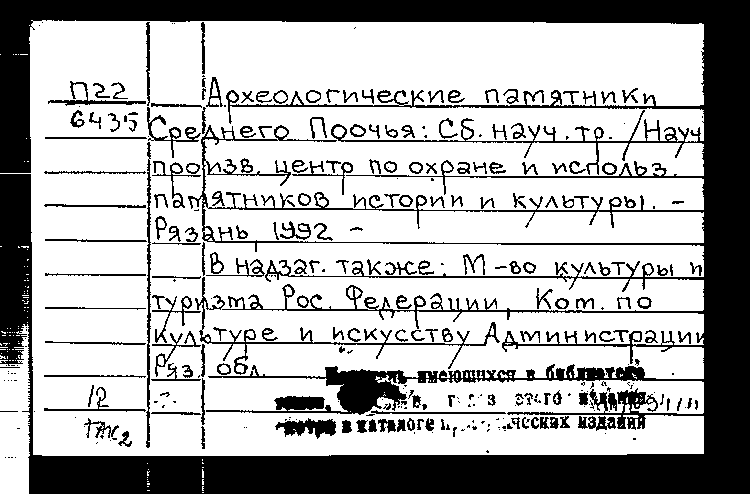 П22 Археологические памятники
6435 Среднего Поочья: Сб. науч. тр. / Науч
произв. центр по охране и использ.
памятников истории и культуры. –
Рязань, 1992 –
В надзаг. также: М-во культуры и
туризма Рос. Федерации, Ком. по
культуре и искусству Администрации
Ряз. обл.
имеющихся в библиотеке
12 этого издания
в каталоге издания